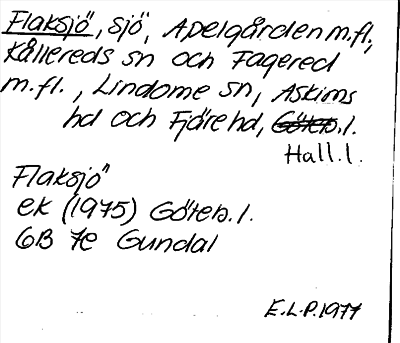 Flaksjö, sjö, Apelgården m.fl.,
Kållereds sn och Fagered
m.fl., Lindome sn, Askims
hd och Fjäre hd, Göteb.l.
Hall.l.
Flaksjö
ek (1975) Göteb.l.
6B 7e Gundal
E.L.P. 1977